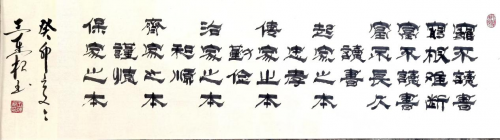 窮不讀書
窮根難斷
富不讀書
富不長久
讀書
起家之本
忠孝
傳家之本
勤儉
治家之本
和順
齊家之本
謹慎
保家之本
癸卯